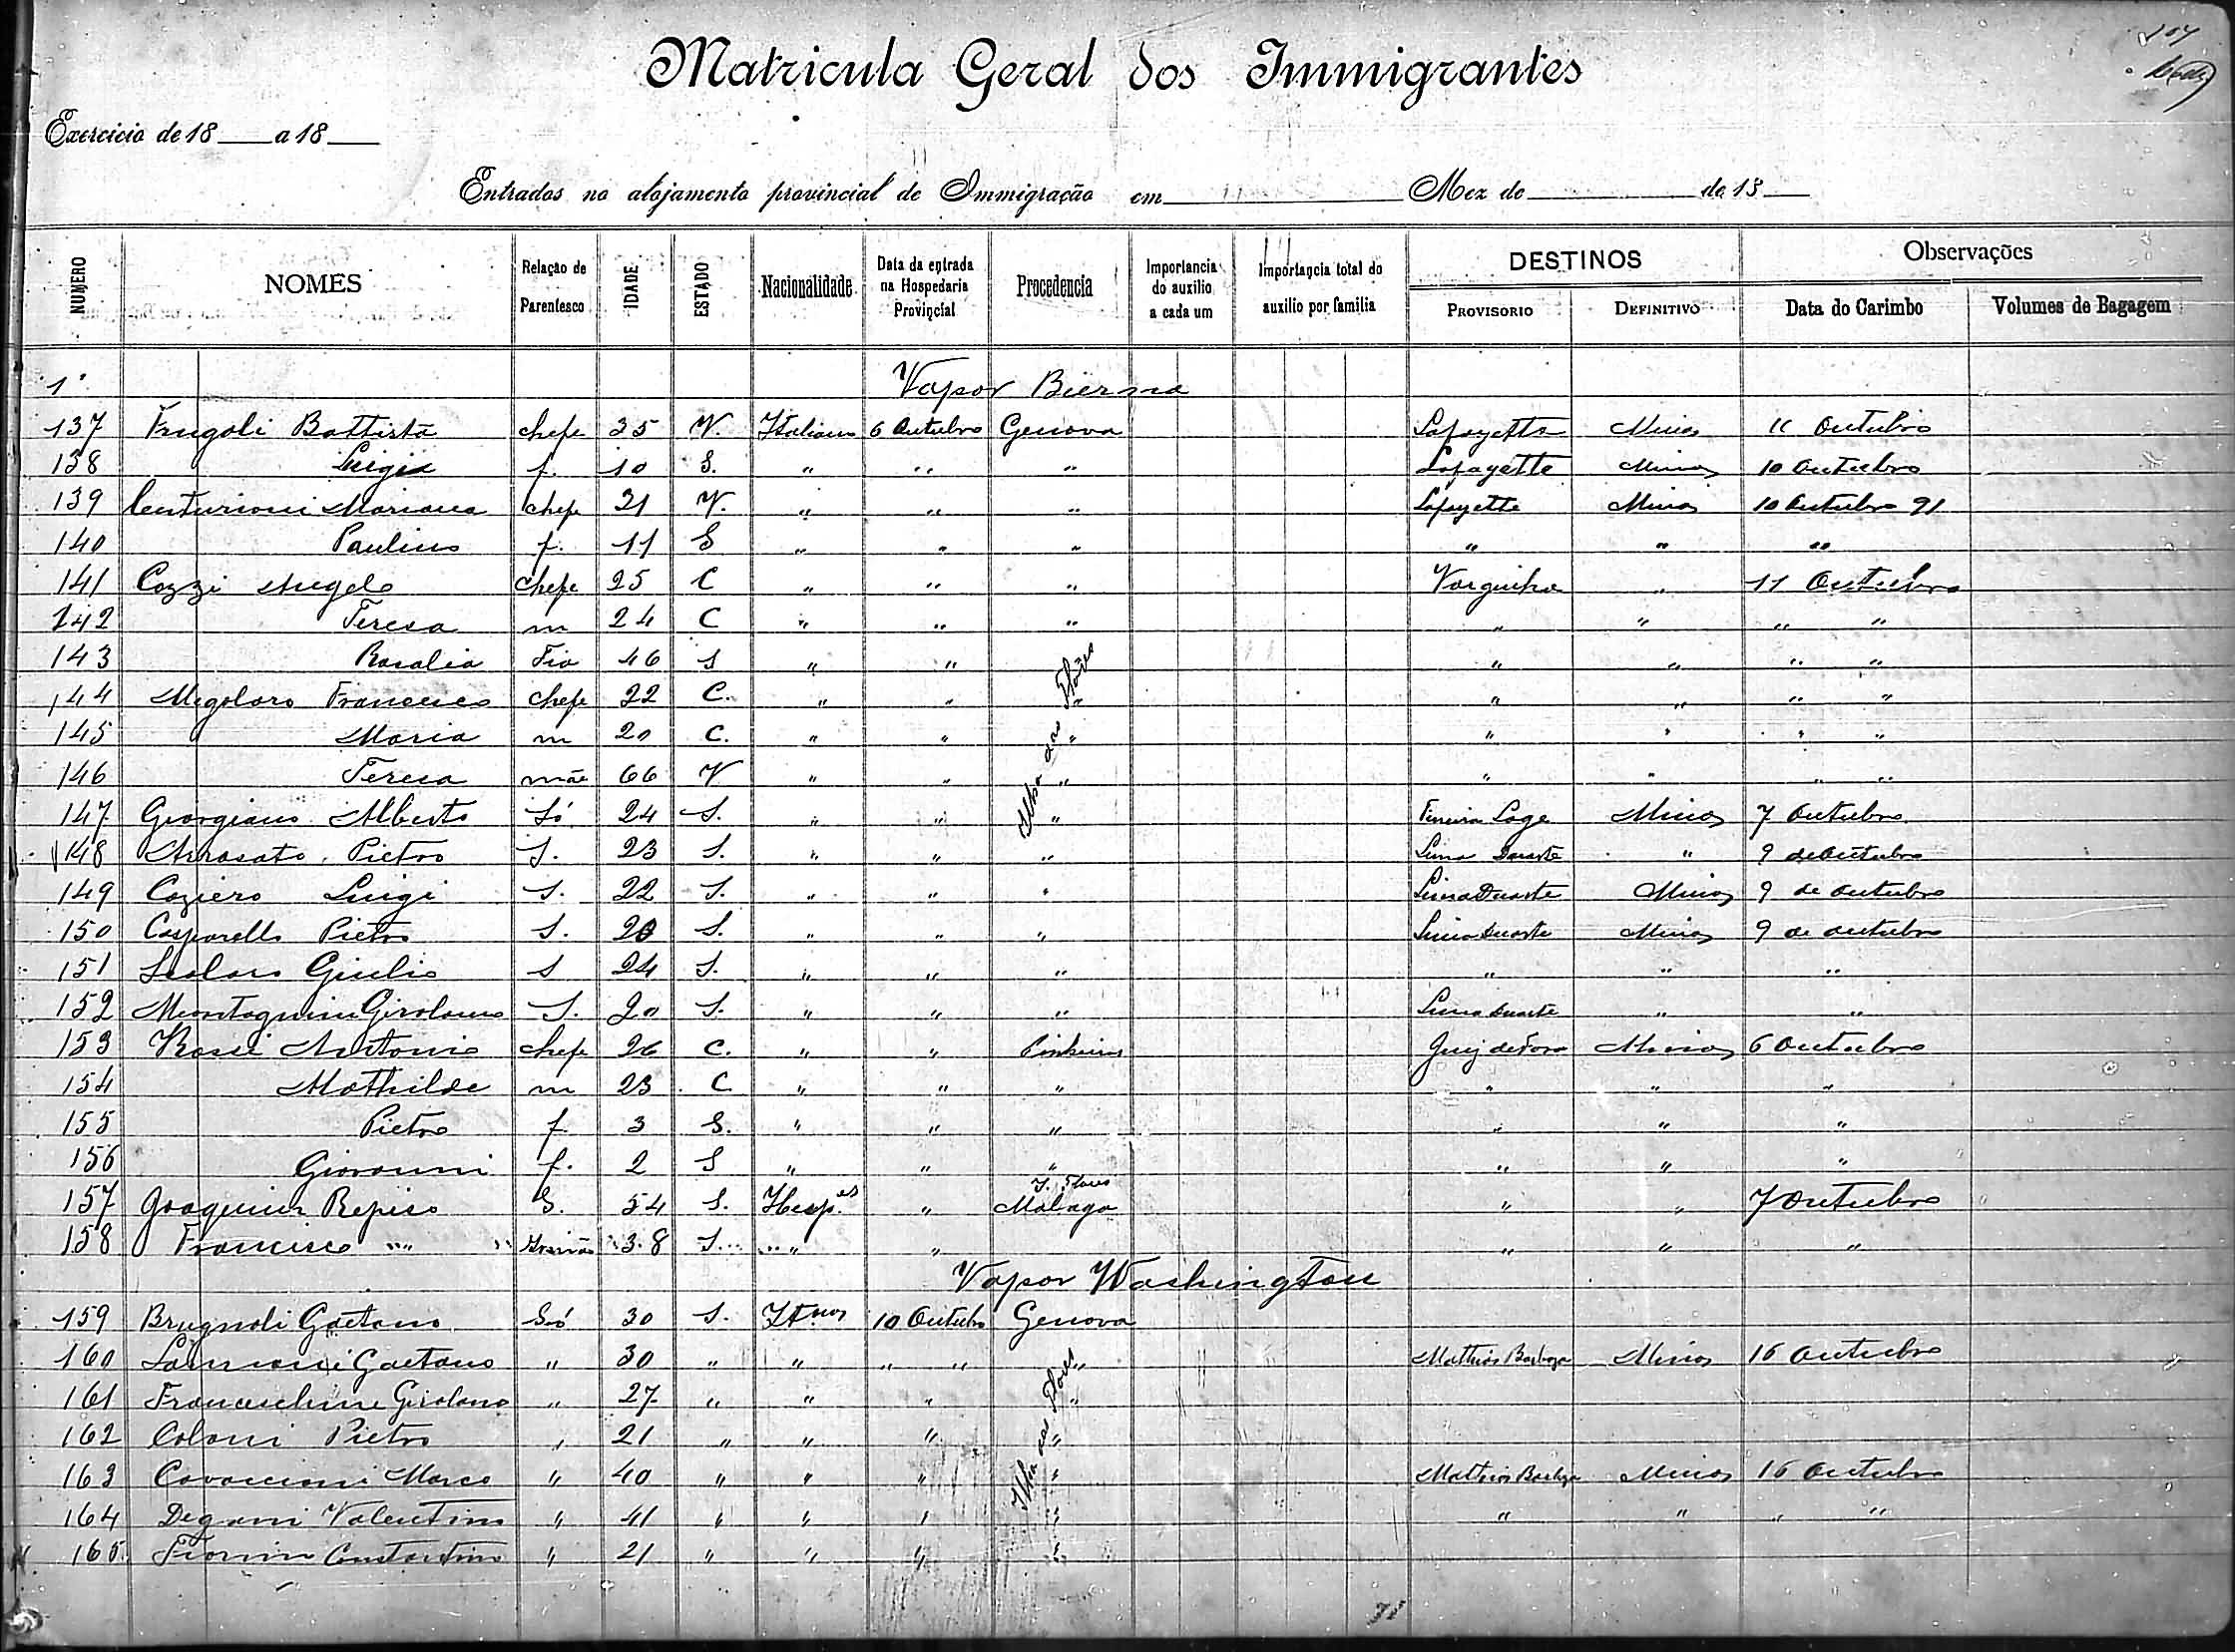 107
Matricula Geral dos Immigrantes
Exercicio de 18 a 18
Entrados no alojamento provincial de Immigração em Mez de de 18
NUMERO NOMES Relação de Parentesco IDADE ESTADO Nacionalidade Data da entrada na Hospedaria Provincial Procedencia Importancia do auxilio a cada um Importancia total do auxilio por familia DESTINOS PROVISORIO DEFINITIVO Observações Data do Carimbo Volumes de Bagagem
1 Vapor Bierma
137 Frugoli Battista chefe 35 V. Italiano 6 Outubro Genova Lafayette Minas 11 Outubro
138 Luigia f. 10 S. " " " Lafayette Minas 10 Outubro
139 Centurioni Mariana chefe 31 V. " " " Lafayette Minas 10 Outubro 91
140 Paulino f. 11 S " " " " " "
141 Cozzi Angelo chefe 25 C " " " Varginha " 11 Outubro
142 Teresa m 24 C " " " " " " "
143 Rosalia Tia 46 S " " " " " "
144 Megolaro Francesco chefe 22 C. " " " " " " "
145 Maria m 20 C. " " " " " " "
146 Teresa mãe 66 V " " " " " " "
Ilha das Flôres
147 Georgiano Alberto Só 24 S. " " " Ferreira Lage Minas 7 Outubro
148 Arrosato Pietro S. 23 S. " " " Lima Duarte " 9 de Outubro
149 Coziero Luigi S. 22 S. " " " Lima Duarte Minas 9 de Outubro
150 Casparello Pietro S. 20 S. " " " Lima Duarte Minas 9 de Outubro
151 Giulio S 24 S. " " " " " "
152 Montagnini Girolamo S. 20 S. " " " Lima Duarte " "
153 Rossi Antonio chefe 26 C. " " Pinheiro Juiz de Fora Minas 6 Outubro
154 Mathilde m 23 C " " " " " "
155 Pietro f. 3 S. " " " " " "
156 Giovanni f. 2 S " " " " " "
157 Joaquim Repiso S. 54 S. Hesp.es " I. Flores Malaga " " 7 Outubro
158 Francisco " " Irmão 38 S. " " " " "
Vapor Washington
159 Brugnoli Gaetano Só 30 S. It.nos 10 Outubro Genova
160 Gaetano " 30 " " " " " Mathias Barboza Minas 16 Outubro
161 Franceschini Girolamo " 27 " " " "
162 Coloni Pietro " 21 " " " "
163 Cavaccioni Marco " 40 " " " " Mathias Barboza Minas 16 Outubro
164 Degani Valentino " 41 " " " " " " " "
165 Fiorini Constantino " 21 " " " "
Ilha das Flores